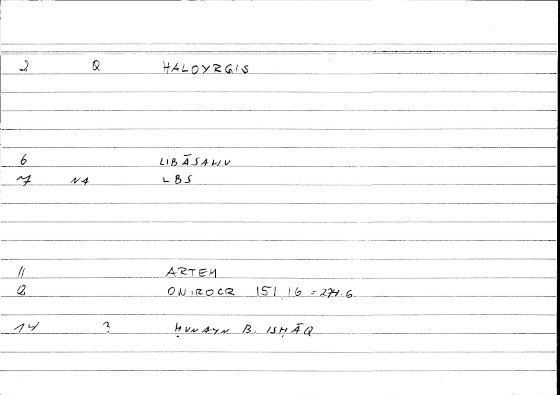 2 Q HALOYRGIS
6 LIBĀSAHU
7 NA LBS
11 ARTEM
12 ONIROCR 151,16 = 274.6
14 ? ḤUNAYN B. ISḤĀQ